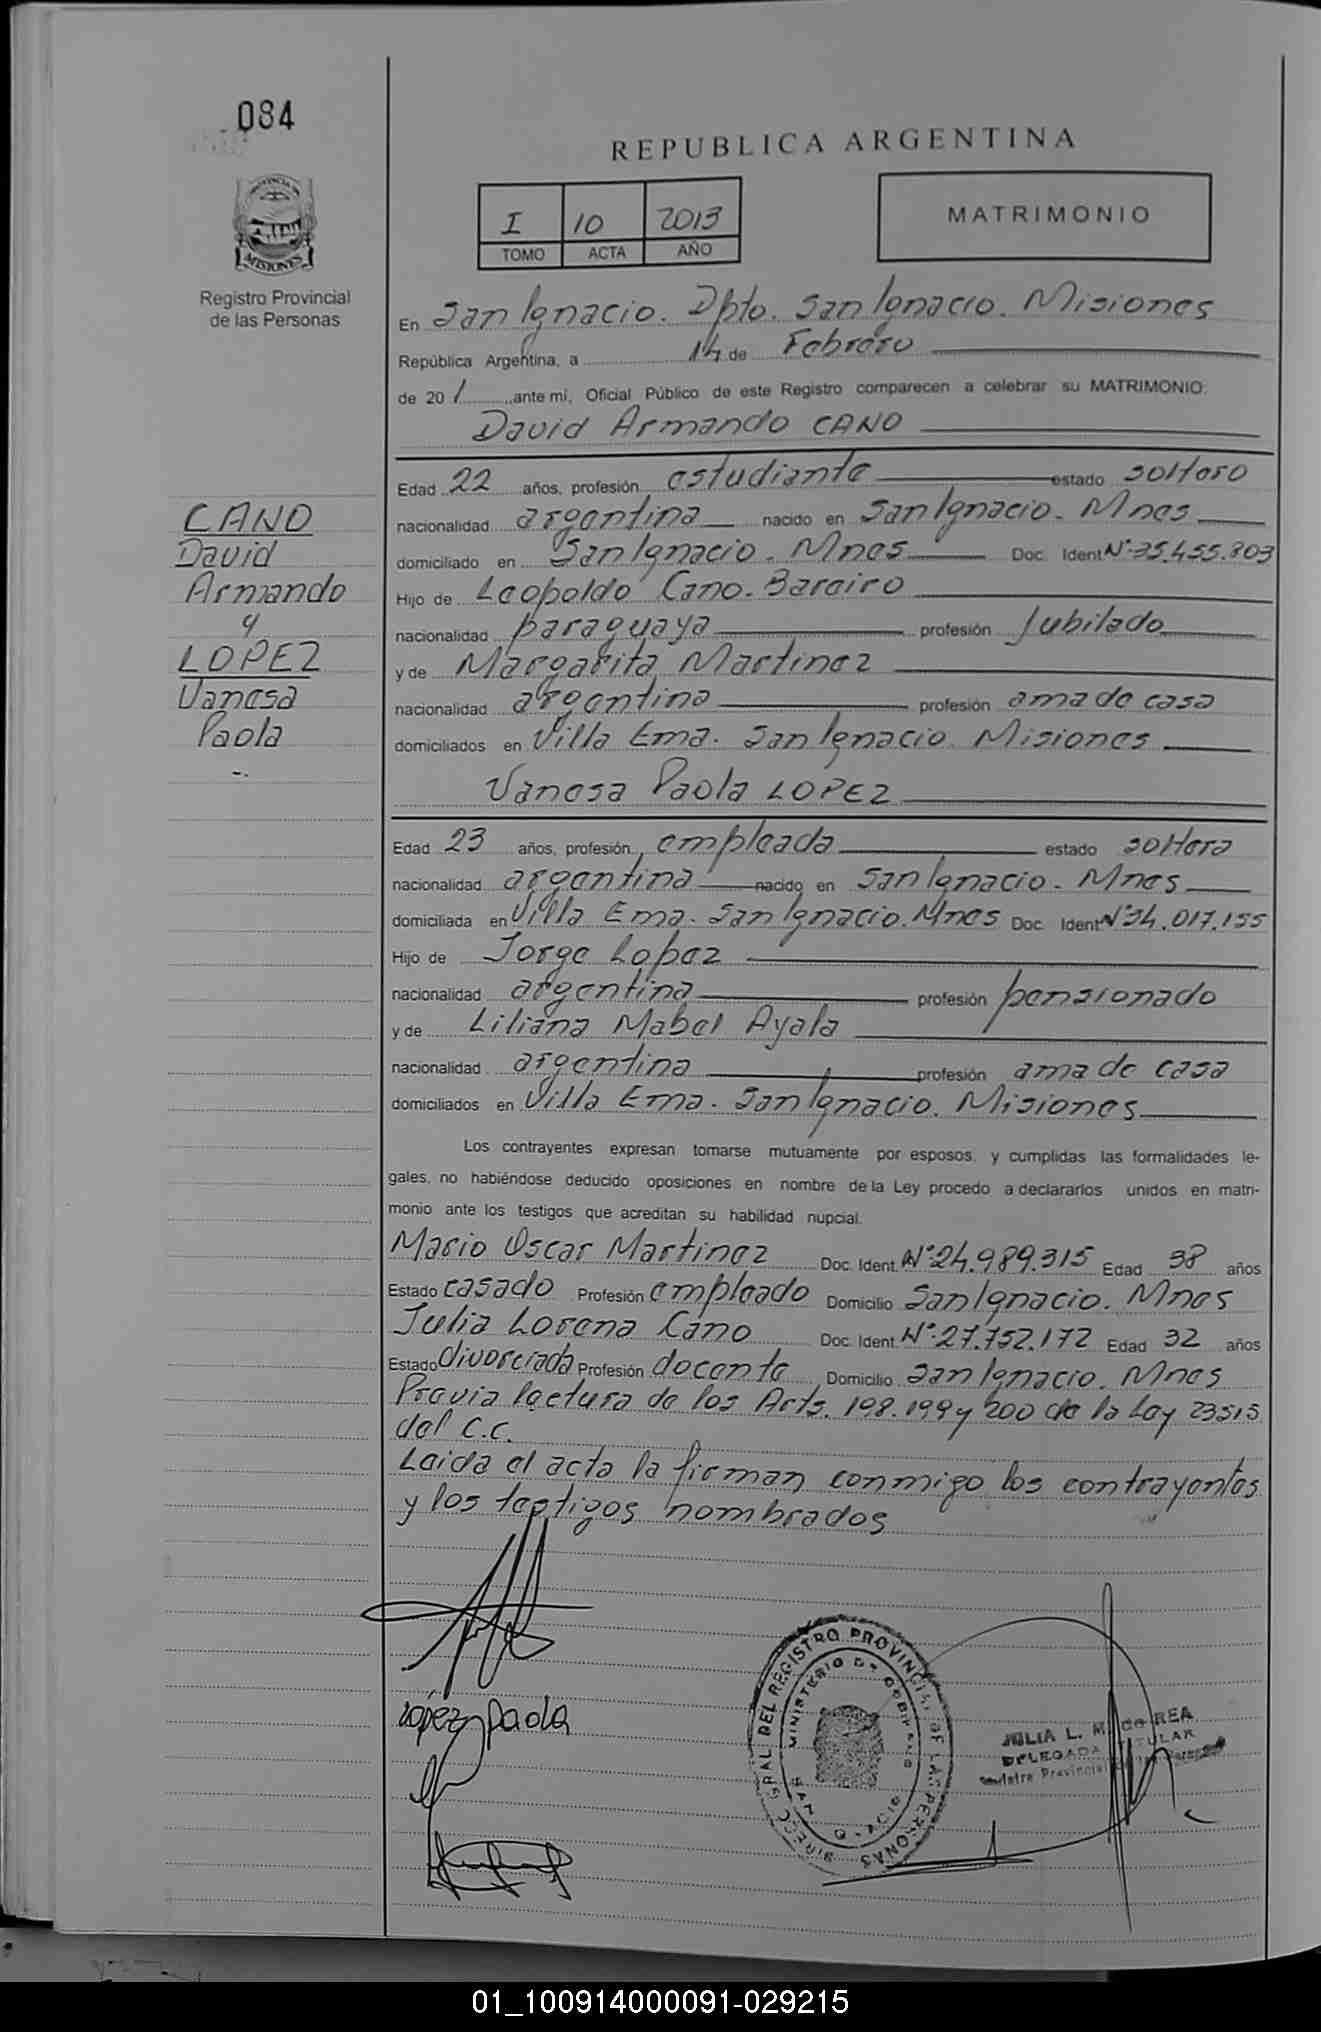 084
REPUBLICA ARGENTINA
I 10 2013
TOMO ACTA AÑO
MATRIMONIO
MISIONES
Registro Provincial
de las Personas
En San Ignacio. Dpto. San Ignacio. Misiones
República Argentina, a 14 de Febrero
de 20 ante mi, Oficial Público de este Registro comparecen a celebrar su MATRIMONIO:
David Armando CANO
Edad 22 años, profesión estudiante estado soltero
nacionalidad argentina nacido en San Ignacio. Mnes
domiciliado en San Ignacio. Mnes Doc. Ident Nº 35.455.803
Hijo de Leopoldo Cano. Bareiro
nacionalidad paraguaya profesión Jubilado
y de Margarita Martinez
nacionalidad argentina profesión ama de casa
domiciliados en Villa Ema. San Ignacio. Misiones
CANO
David
Armando
y
LOPEZ
Vanesa
Paola
Vanesa Paola LOPEZ
Edad 23 años, profesión empleada estado soltera
nacionalidad argentina nacido en San Ignacio. Mnes
domiciliada en Villa Ema. San Ignacio. Mnes Doc. Ident Nº 34.017.155
Hijo de Jorge Lopez
nacionalidad argentina profesión pensionado
y de Liliana Mabel Ayala
nacionalidad argentina profesión ama de casa
domiciliados en Villa Ema. San Ignacio. Misiones
Los contrayentes expresan tomarse mutuamente por esposos, y cumplidas las formalidades le-
gales, no habiéndose deducido oposiciones en nombre de la Ley procedo a declararlos unidos en matri-
monio ante los testigos que acreditan su habilidad nupcial.
Mario Oscar Martinez Doc. Ident. Nº 24.989.315 Edad 38 años
Estado casado Profesión empleado Domicilio San Ignacio. Mnes
Julia Lorena Cano Doc. Ident. Nº 27.752.172 Edad 32 años
Estado divorciada Profesión docente Domicilio San Ignacio. Mnes
Previa lectura de los Arts. 198. 199 y 200 de la Ley 23515
del C.C.
Leida el acta la firman conmigo los contrayentes
y los testigos nombrados
López Paola
DIRECC GRAL DEL REGISTRO PROVINCIAL DE LAS PERSONAS
MINISTERIO DE GOBIERNO
JULIA L. M
DELEGADA TITULAR
Provincial
01_100914000091-029215